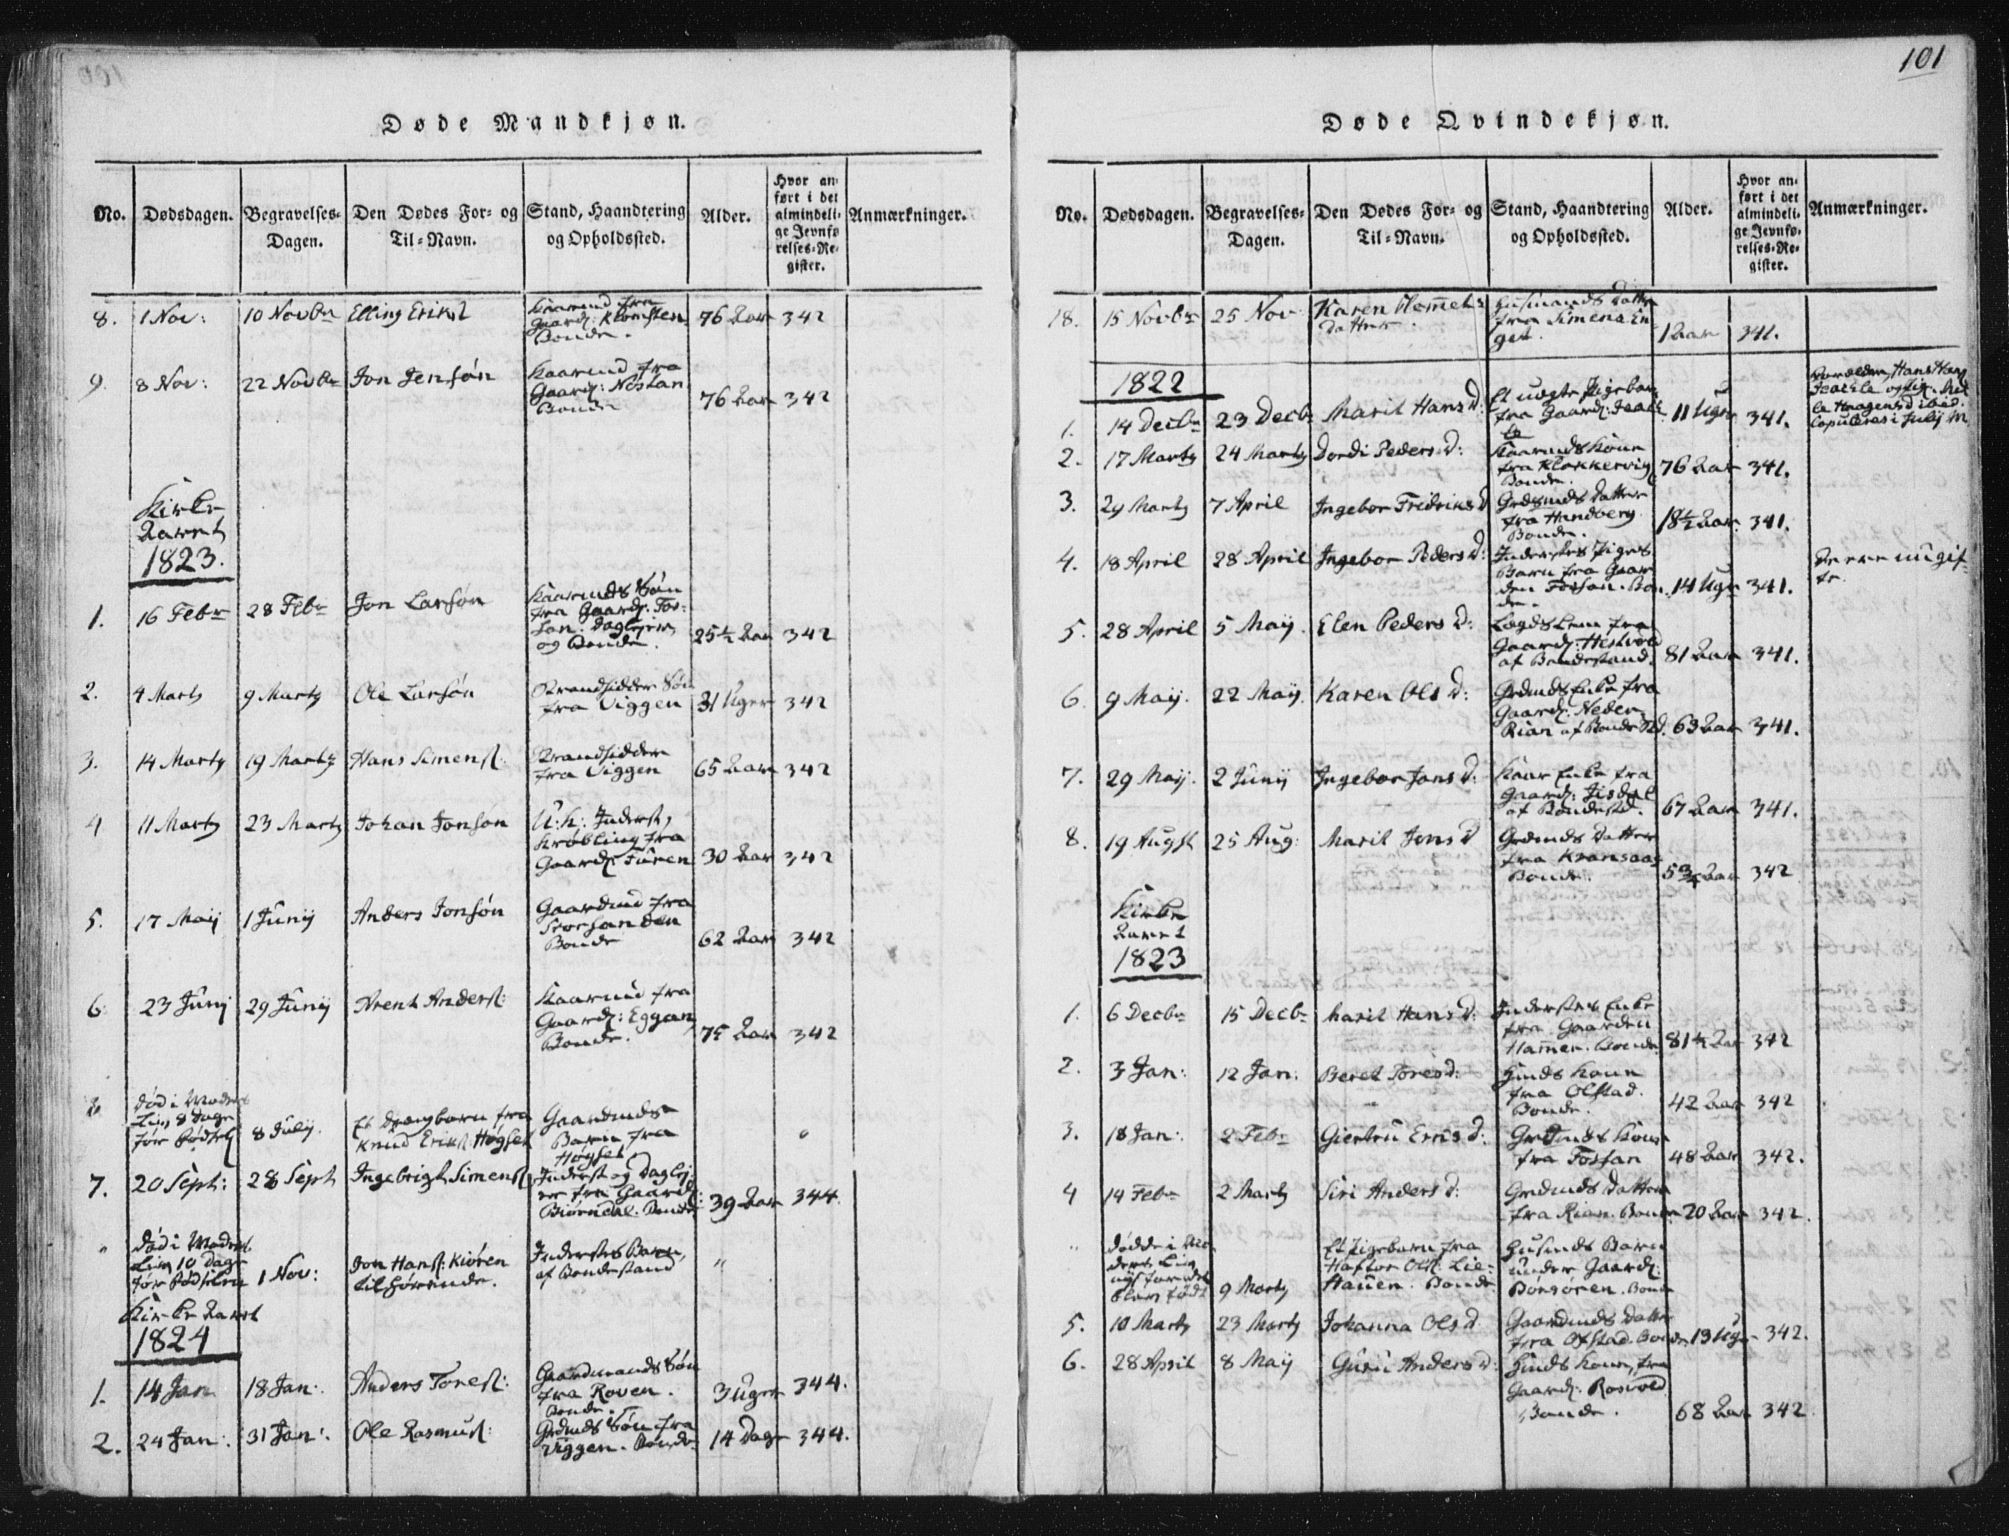 101
Døde Mandkjøn.
No.
Dødsdagen.
Begravelses-
Dagen.
Den Dødes For- og
Til-Navn.
Stand, Haandtering
og Opholdssted.
Alder.
Hvor an-
ført i det
almindeli-
ge Jevnfø-
relses-Re-
gister.
Anmærkninger.
8. 1 Nov: 10 Novbr Elling Eriks
Kaarmd fra
Gaard: Klomsten
Bonde.
76 Aar 342
9. 8 Nov: 22 Novbr Jon Jensøn
Kaarmd fra
Gaard: Nostan
Bonde
76 Aar 342
Kirke
Aaret
1823.
1. 16 Febr 28 Febr Jon Larsøn
Kaarmds Søn
fra Gaard: Fos-
san. Daglejer
og Bonde.
25½ Aar 342
2. 4 Marts 9 Marts Ole Larsøn
Strandsidder Søn
fra Viggen
31 Uger 342
3. 14 Marts 19 Marts Hans Simens:
Strandsidder
fra Viggen
65 Aar 342
4 11 Marts 23 Marts Johan Jonsøn
U:k: Inderst,
Krøbling fra
Gaard: Furen
30 Aar 342
5. 17 Maij 1 Junij Anders Jonsøn
Gaardmd fra
Storsanden
Bonde
62 Aar 342
6. 23 Junij 29 Junij Arent Anders:
Kaarmd fra
Gaard: Eggan,
Bonde.
75 Aar 342
Død i Moders
Liv 8 Dage
før Fødsel
8 Julij
Et Drengbarn fra
Knud Eriks Høgset
Gaardmds
Barn fra
Høgset
"
7. 20 Sept: 28 Sept Ingebrigt Simens
Inderst og Daglej
er fra Gaard:
Biørndal. Bonde
39 Aar 344.
" Død i Moders
Liv 10 Dage
før Fødselen
1 Nov:
Jon Hans: Kiøren
tilhørende.
Inderstes Barn,
af Bondestand
"
Kirke Aaret
1824
1. 14 Jan 18 Jan: Anders Tores:
Gaardmands Søn
fra Roven.
Bonde.
3 Uger 344.
2. 24 Jan: 31 Jan: Ole Rasmus:
Grdmds Søn fra
Viggen. Bonde
14 Dage 344.
Døde Qvindekjøn.
No.
Dødsdagen.
Begravelses-
Dagen.
Den Dødes For- og
Til-Navn.
Stand, Haandtering
og Opholdssted.
Alder.
Hvor an-
ført i det
almindeli-
ge Jevnfø-
relses-Re-
gister.
Anmærkninger.
18. 15 Novbr 25 Nov Karen Clemets
Datter.
Husmands Datter
fra Simens En
get.
1 Aar 341.
1822
1. 14 Decbr 23 Decb: Marit Hans D:
Et uægte Pigebarn
fra Gaard:
11 Uger 341.
Forældre, Hans Hans
og Pig.
Haagens D ibid.
Copuleres i Julij M
2. 17 Marts 24 Marts Dordi Peders D:
Kaarmds Kone
fra Klokkervig
Bonde.
76 Aar 341.
3. 29 Marts 7 April Ingebor Fredriks D
Grdsmds Datter
fra Handberg
Bonde.
18½ Aar 341.
4. 18 April 28 April Ingebor Peders D:
Inderstes Piges
Barn fra Gaar
den Fossan. Bon
de.
14 Uger 341.
De ere nu gif-
te.
5. 28 April 5 Maij Elen Peders D:
Lægds Lem fra
Gaard: Hestvold
af Bondestand.
81 Aar 341.
6. 9 Maij. 22 Maij. Karen Ols D:
Grdmds Enke fra
Gaard: Neder
Rian af Bonde Std.
63 Aar 341.
7. 29 Maij. 2 Junij Ingebor Jons D:
Kaar Enke fra
Gaard:
af Bondestd.
67 Aar 341.
8. 19 Augst 25 Aug: Marit Jons D
Grdmds Datter
fra Kransaas
Bonde.
5¾ Aar 342
Kirke
Aaret
1823
1. 6 Decbr 15 Decbr Marit Hans D:
Inderstes Enke
fra Gaarden
Hamer. Bonde
81½ Aar 342
2. 3 Jan: 12 Jan: Beret Tores D:
Hmds Kone
fra Olstad.
Bonde.
42 Aar 342
3. 18 Jan: 2 Febr Giertru Erns D:
Grdmds Kone
fra Fossan
48 Aar 342.
4 14 Febr 2 Marts Siri Anders D:
Grdmds Datter
fra Rian. Bonde
20 Aar 342.
" Dødde i Mo
ders Liv
nys før det
blev født
9 Marts
Et Pigebarn fra
Haftor Ols: Lie-
Hauen. Bonde
Husmds Barn
under Gaard:
Børsøren. Bonde
5. 10 Marts 23 Marts Johanna Ols D
Gaardmds Datter
fra Ofstad. Bonde
13 Uger 342.
6. 28 April 8 Maij Guru Anders D:
Hmds Kone, fra
Gaard: Rosvold
Bonde.
68 Aar 342.